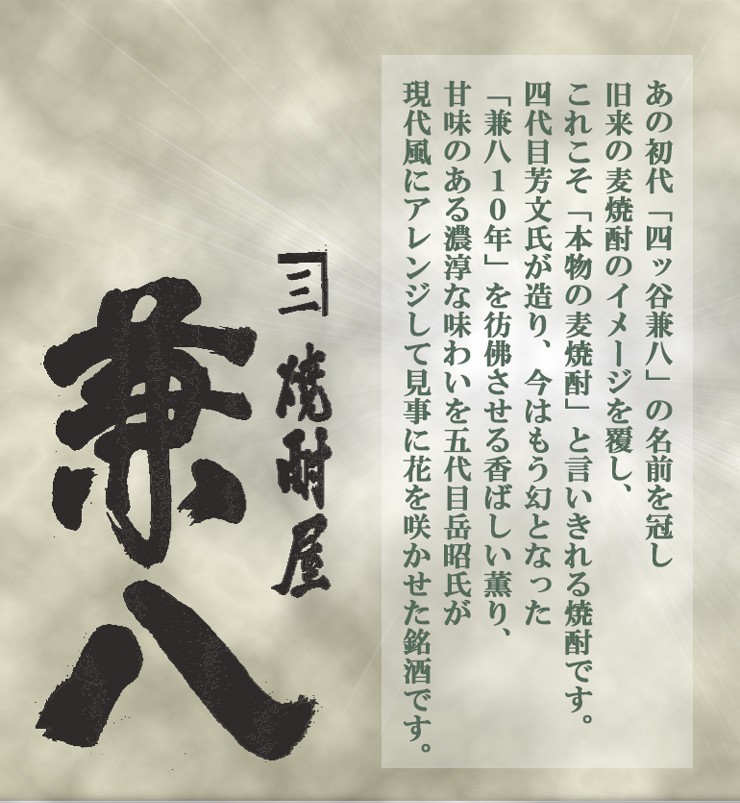 あの初代「四ッ谷兼八」の名前を冠し
旧来の麦焼酎のイメージを覆し、
これこそ「本物の麦焼酎」と言いきれる焼酎です。
四代目芳文氏が造り、今はもう幻となった
「兼八１０年」を彷彿させる香ばしい薫り、
甘味のある濃淳な味わいを五代目岳昭氏が
現代風にアレンジして見事に花を咲かせた銘酒です。
三 焼酎屋
兼八